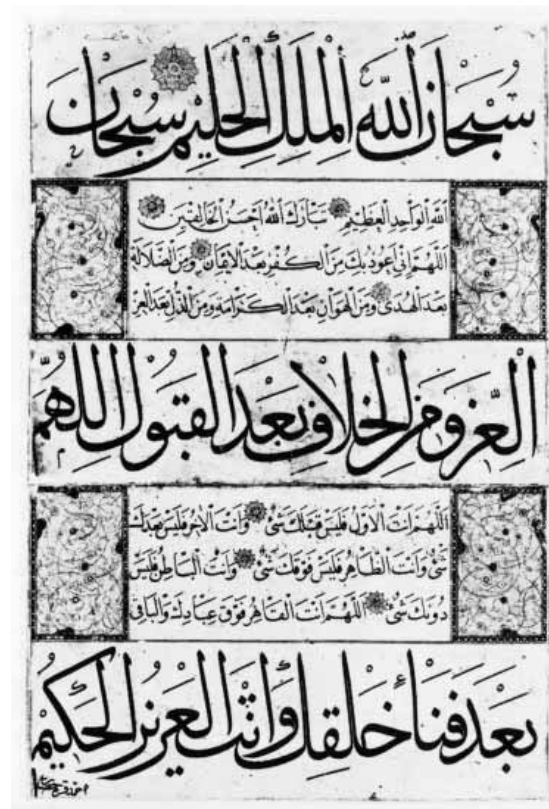 سُبْحَانَ اللّٰهِ الْمَلِكِ الْحَلِيمِ سُبْحَانَ
اَللّٰهِ الْوَاحِدِ الْعَظِيمِ تَبَارَكَ اللّٰهُ اَحْسَنُ الْخَالِقِينَ
اَللّٰهُمَّ اِنِّي اَعُوذُ بِكَ مِنَ الْكُفْرِ بَعْدَ الْاِيقَانِ وَمِنَ الضَّلَالَةِ
بَعْدَ الْهُدَى وَمِنَ الْهَوَانِ بَعْدَ الْكَرَامَةِ وَمِنَ الذُّلِّ بَعْدَ الْعِزِّ
الْعِزِّ وَمِنَ الْخِلَافِ بَعْدَ الْقَبُولِ اَللّٰهُمَّ
اَللّٰهُمَّ اَنْتَ الْاَوَّلُ فَلَيْسَ قَبْلَكَ شَيْءٌ وَاَنْتَ الْاٰخِرُ فَلَيْسَ بَعْدَكَ
شَيْءٌ وَاَنْتَ الظَّاهِرُ فَلَيْسَ فَوْقَكَ شَيْءٌ وَاَنْتَ الْبَاطِنُ فَلَيْسَ
دُونَكَ شَيْءٌ اَللّٰهُمَّ اَنْتَ الْقَاهِرُ فَوْقَ عِبَادِكَ وَالْبَاقِي
بَعْدَ فَنَاءِ خَلْقِكَ وَاَنْتَ الْعَزِيزُ الْحَكِيمُ